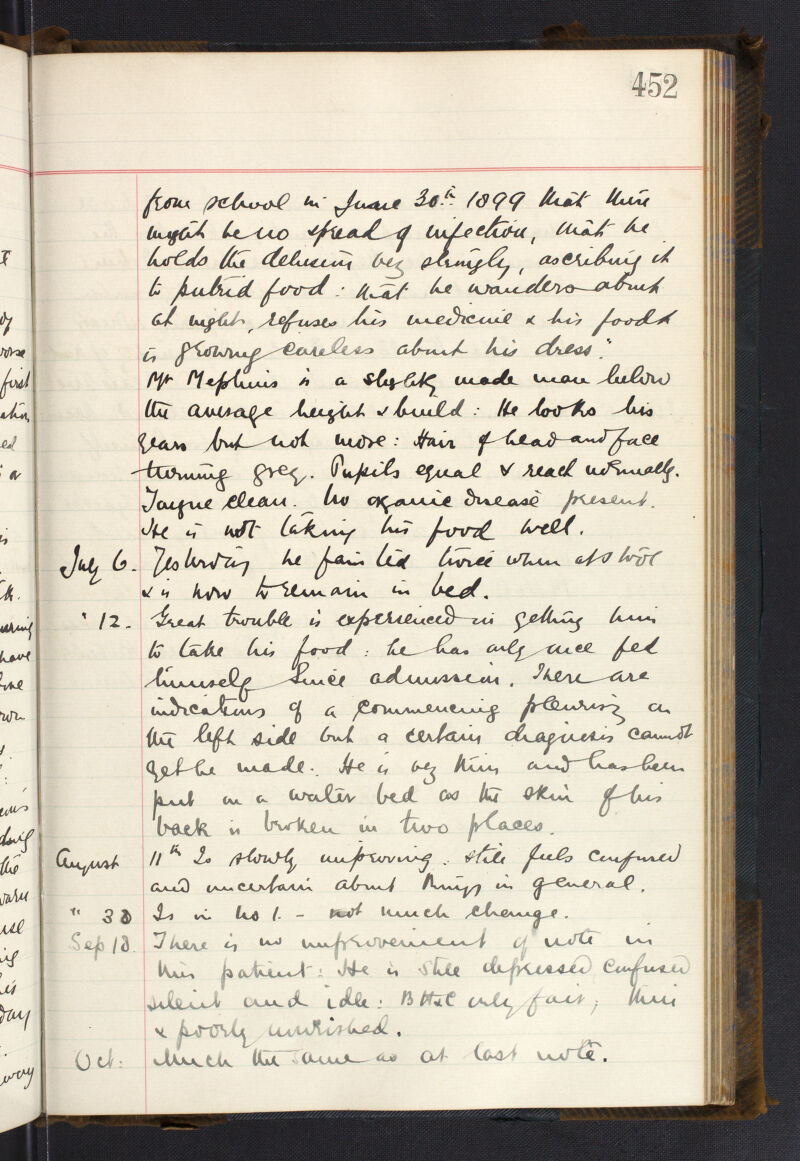 452
from school in June 30th 1899 that there
might be no spread of infection, that he
holds the delusions very strongly, ascribing it
to putrid food: that he wanders about
at night, refuses his medicine & his food &
is growing careless about his dress".
Mr is a slightly made man below
the average height & build: He looks his
years but not more: Hair of head and face
turning grey. Pupils equal & react normally.
Tongue clean. No organic disease present.
He is not taking his food well.
July 6. Yesterday he fainted twice when at stool
& is now to remain in bed.
" 12. Great trouble is experienced in getting him
to take his food: he has only once fed
himself since admission. There are
indications of a commencing pleurisy on
the left side but a certain diagnosis cannot
yet be made. He is very thin and has been
put on a water bed as the skin of his
back is broken in two places.
August 11th Is slowly improving. still feels confused
and uncertain about things in general.
" 30 Is in No 1. - not much change.
Sep 18. There is no improvement of note in
this patient: He is still depressed confused
silent and idle: B H & C only fair; thin
& poorly nourished.
Oct: Much the same as at last note.